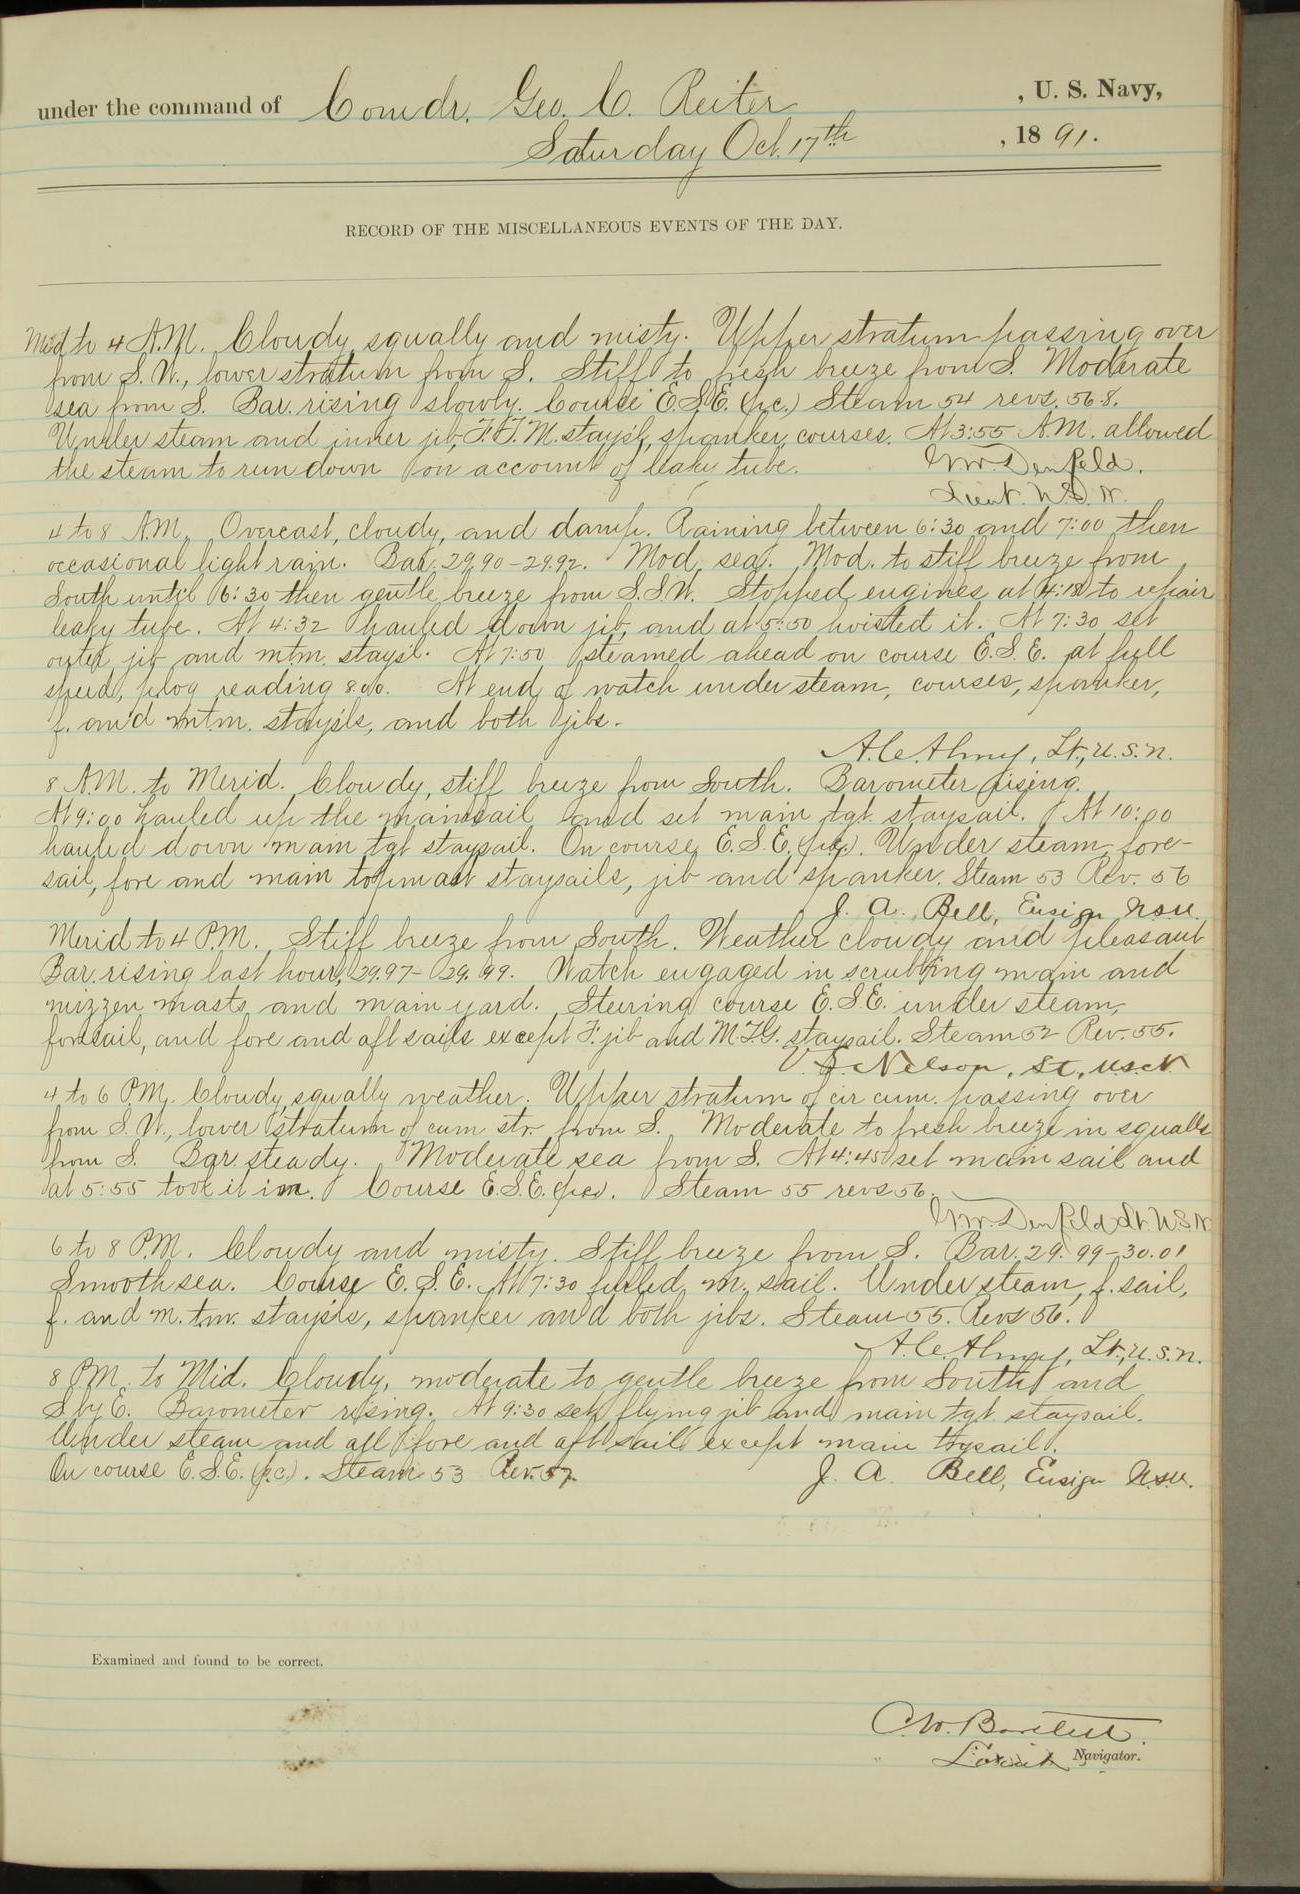 under the command of Comdr. Geo. C. Reiter , U. S. Navy,
Saturday Oct. 17th , 1891.
RECORD OF THE MISCELLANEOUS EVENTS OF THE DAY.
Mid to 4 A.M. Cloudy squally and misty. Upper stratum passing over
from S.W., lower stratum from S. Stiff to fresh breeze from S. Moderate
sea from S. Bar. rising slowly. Course E.S.E. (p.c.) Steam 54 revs. 56.8.
Under steam and inner jib, F.T.M. stays'l, spanker, courses. At 3:55 A.M. allowed
the steam to run down on account of leaky tube. Denfeld.
Lieut. U.S.N.
4 to 8 A.M. Overcast, cloudy, and damp. Raining between 6:30 and 7:00 then
occasional light rain. Bar. 29.90-29.92. Mod. sea. Mod. to stiff breeze from
South until 6:30 then gentle breeze from S.S.W. Stopped engines at to repair
leaky tube. At 4:32 hauled down jib, and at 5:50 hoisted it. At 7:30 set
outer jib and mtm. stays'l. At 7:50 steamed ahead on course E.S.E. at full
speed, p. log reading At end of watch under steam, courses, spanker,
f. and m.t.m. stays'ls, and both jibs.
A. C. Almy, Lt., U.S.N.
8 A.M. to Merid. Cloudy, stiff breeze from South. Barometer rising.
At 9:00 hauled up the mainsail and set main tgt. staysail. At 10:00
hauled down main tgt staysail. On course E.S.E. (p.c.). Under steam, fore-
sail, fore and main topmast staysails, jib and spanker. Steam 53 Rev. 56
J. A. Bell, Ensign U.S.N.
Merid to 4 P.M. Stiff breeze from South. Weather cloudy and pleasant
Bar. rising last hour, 29.97-29.99. Watch engaged in scrubbing main and
mizzen masts and main yard. Steering course E.S.E. under steam,
foresail, and fore and aft sails except F. jib and M.T.G. staysail. Steam 52 Rev. 55.
V. S. Nelson, Lt., U.S.N
4 to 6 P.M. Cloudy squally weather. Upper stratum of cir cum. passing over
from S.W., lower stratum of cum str. from S. Moderate to fresh breeze in squalls
from S. Bar. steady. Moderate sea from S. At 4:45 set mainsail and
at 5:55 took it in. Course E.S.E. (p.c.). Steam 55 revs 56.
Denfeld Lt. U.S.N
6 to 8 P.M. Cloudy and misty. Stiff breeze from S. Bar. 29.99-30.01
Smooth sea. Course E.S.E. At 7:30 furled m. sail. Under steam, f. sail,
f. and m.t.m. stays'ls, spanker and both jibs. Steam 55. Revs 56.
A. C. Almy, Lt., U.S.N.
8 P.M. to Mid. Cloudy, moderate to gentle breeze from South and
S by E. Barometer rising. At 9:30 set flying jib and main tgt staysail.
Under steam and all fore and aft sail except main trysail.
On course E.S.E. (p.c.). Steam 53 Rev. 57.
J. A. Bell, Ensign U.S.N.
Examined and found to be correct.
C. W. Bartlett.
Lieut. Navigator.